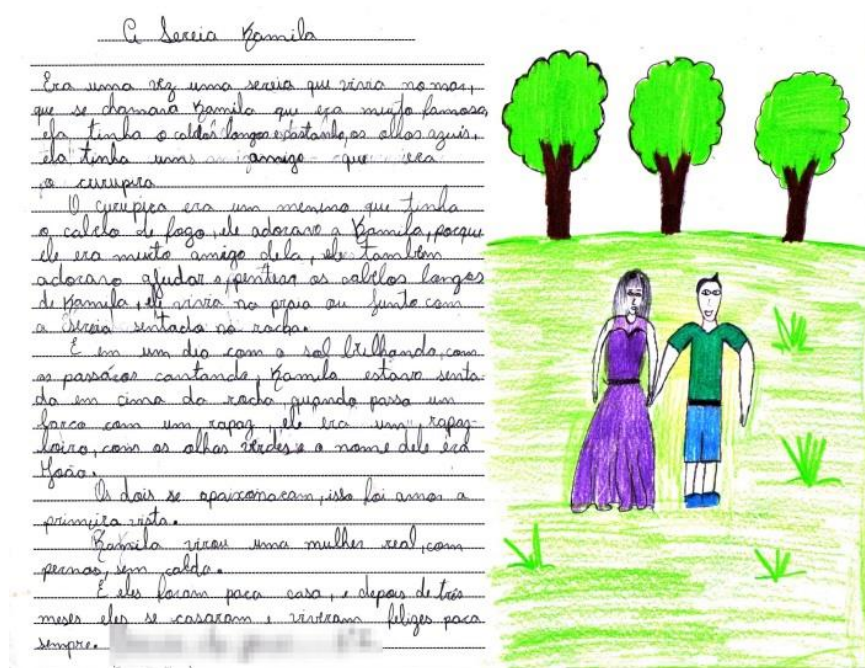 A Sereia Kamila
Era uma vez uma sereia que vivia no mar,
que se chamara Kamila que era muito famosa,
ela tinha o os olhos azuis,
ela tinha ums amigo que era
o curupira
O curupira era um menino que tinha
o cabelo de fogo, ele adorava a Kamila, porque
ele era muito amigo dela, eles também
adorava ajudar e pentear os cabelos longos
de Kamila, ele vivia na praia ou junto com
a sereia sentada na rocha.
E em um dia com o sol brilhando, com
os passáros cantando, Kamila estava senta-
da em cima da rocha quando passa um
barco com um rapaz, ele era um rapaz
loiro, com os olhos verdes e o nome dele era
João.
Os dois se apaixonaram, isso foi amor a
primeira vista.
Kamila virou uma mulher real, com
pernas, sem calda.
E eles foram para casa, e depois de três
meses eles se casaram e viveram felizes para
sempre.